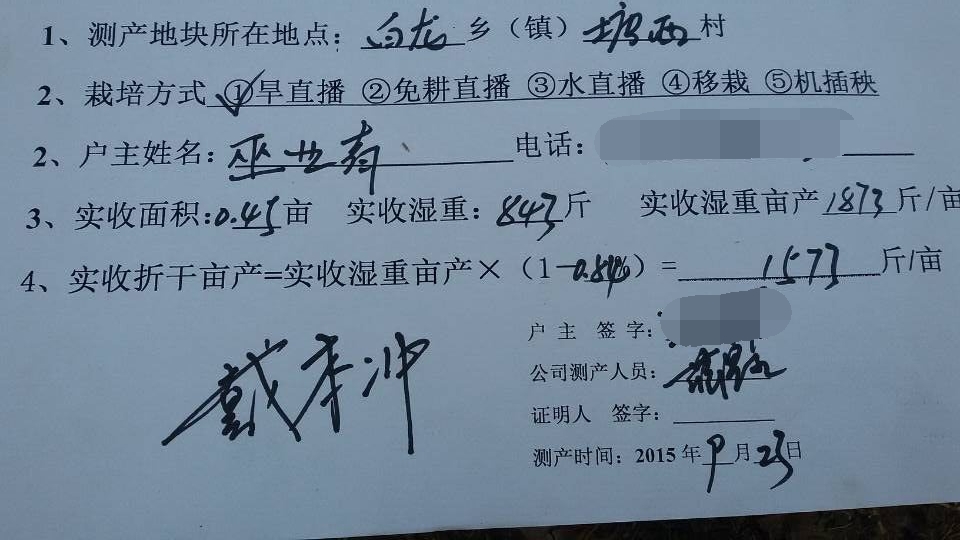 1、测产地块所在地点：白龙乡（镇）塘西村
2、栽培方式 ①旱直播 ②免耕直播 ③水直播 ④移栽 ⑤机插秧
2、户主姓名：巫业寿 电话：
3、实收面积：0.45亩 实收湿重：843斤 实收湿重亩产1873斤/亩
4、实收折干亩产=实收湿重亩产×（1-）=1573斤/亩
户 主 签 字：
公司测产人员：
证明人 签字：
测产时间：2015年9月23日
戴李冲